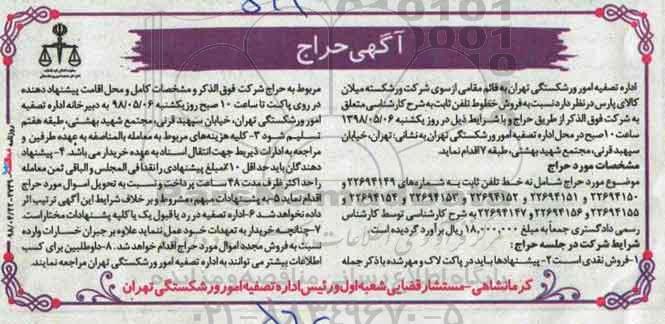 آگهی حراج
اداره تصفیه امور ورشکستگی تهران به قائم مقامی از سوی شرکت ورشکسته میلان
کالای پارس در نظر دارد نسبت به فروش خطوط تلفن ثابت به شرح کارشناسی متعلق
به شرکت فوق الذکر از طریق حراج و با شرایط ذیل در روز یکشنبه ۱۳۹۸/۰۵/۰۶
ساعت ۱۰ صبح در محل اداره تصفیه امور ورشکستگی تهران به نشانی: تهران، خیابان
سپهبد قرنی، مجتمع شهید بهشتی، طبقه ۷ اقدام نماید.
مشخصات مورد حراج
موضوع مورد حراج شامل نه خط تلفن ثابت به شماره‌های ۲۲۶۹۴۱۴۹ و
۲۲۶۹۴۱۵۰ و ۲۲۶۹۴۱۵۱ و ۲۲۶۹۴۱۵۲ و ۲۲۶۹۴۱۵۳ و ۲۲۶۹۴۱۵۴ و
۲۲۶۹۴۱۵۵ و ۲۲۶۹۴۱۵۶ و ۲۲۶۹۴۱۴۷ به شرح کارشناسی توسط کارشناس
رسمی دادگستری جمعاً به مبلغ ۱۸,۰۰۰,۰۰۰ ریال برآورد گردیده است.
شرایط شرکت در جلسه حراج:
۱-فروش نقدی است ۲- پیشنهادها باید در پاکت لاک و مهر شده با ذکر جمله
مربوط به حراج شرکت فوق الذکر و مشخصات کامل و محل اقامت پیشنهاد دهنده
در روی پاکت تا ساعت ۱۰ صبح روز یکشنبه ۹۸/۰۵/۰۶ به دبیرخانه اداره تصفیه
امور ورشکستگی تهران، خیابان سپهبد قرنی، مجتمع شهید بهشتی، طبقه هفتم
تسلیم شود ۳- کلیه هزینه‌های مربوط به معامله بالمناصفه به عهده طرفین و
مراجعه به ادارات ذیربط جهت انتقال اسناد به عهده خریدار می باشد. ۴- پیشنهاد
دهندگان باید حداقل ۱۰٪ مبلغ پیشنهادی را نقداً فی المجلس و الباقی ثمن معامله
را حداکثر ظرف مدت ۴۸ ساعت پرداخت و نسبت به تحویل اموال مورد حراج
اقدام نماید ۵- به پیشنهادات مبهم، مشروط و بر خلاف شرایط این آگهی ترتیب اثر
داده نخواهد شد ۶- اداره تصفیه در رد یا قبول یک یا کلیه پیشنهادات مختار است.
۷- چنانچه خریدار به تعهدات خود عمل ننماید علاوه بر جبران خسارات وارده
نسبت به فروش مجدد اموال مورد حراج اقدام خواهد شد. ۸- داوطلبین برای کسب
اطلاعات بیشتر می توانند به اداره تصفیه امور ورشکستگی تهران مراجعه نمایند.
کرمانشاهی-مستشار قضایی شعبه اول و رئیس اداره تصفیه امور ورشکستگی تهران